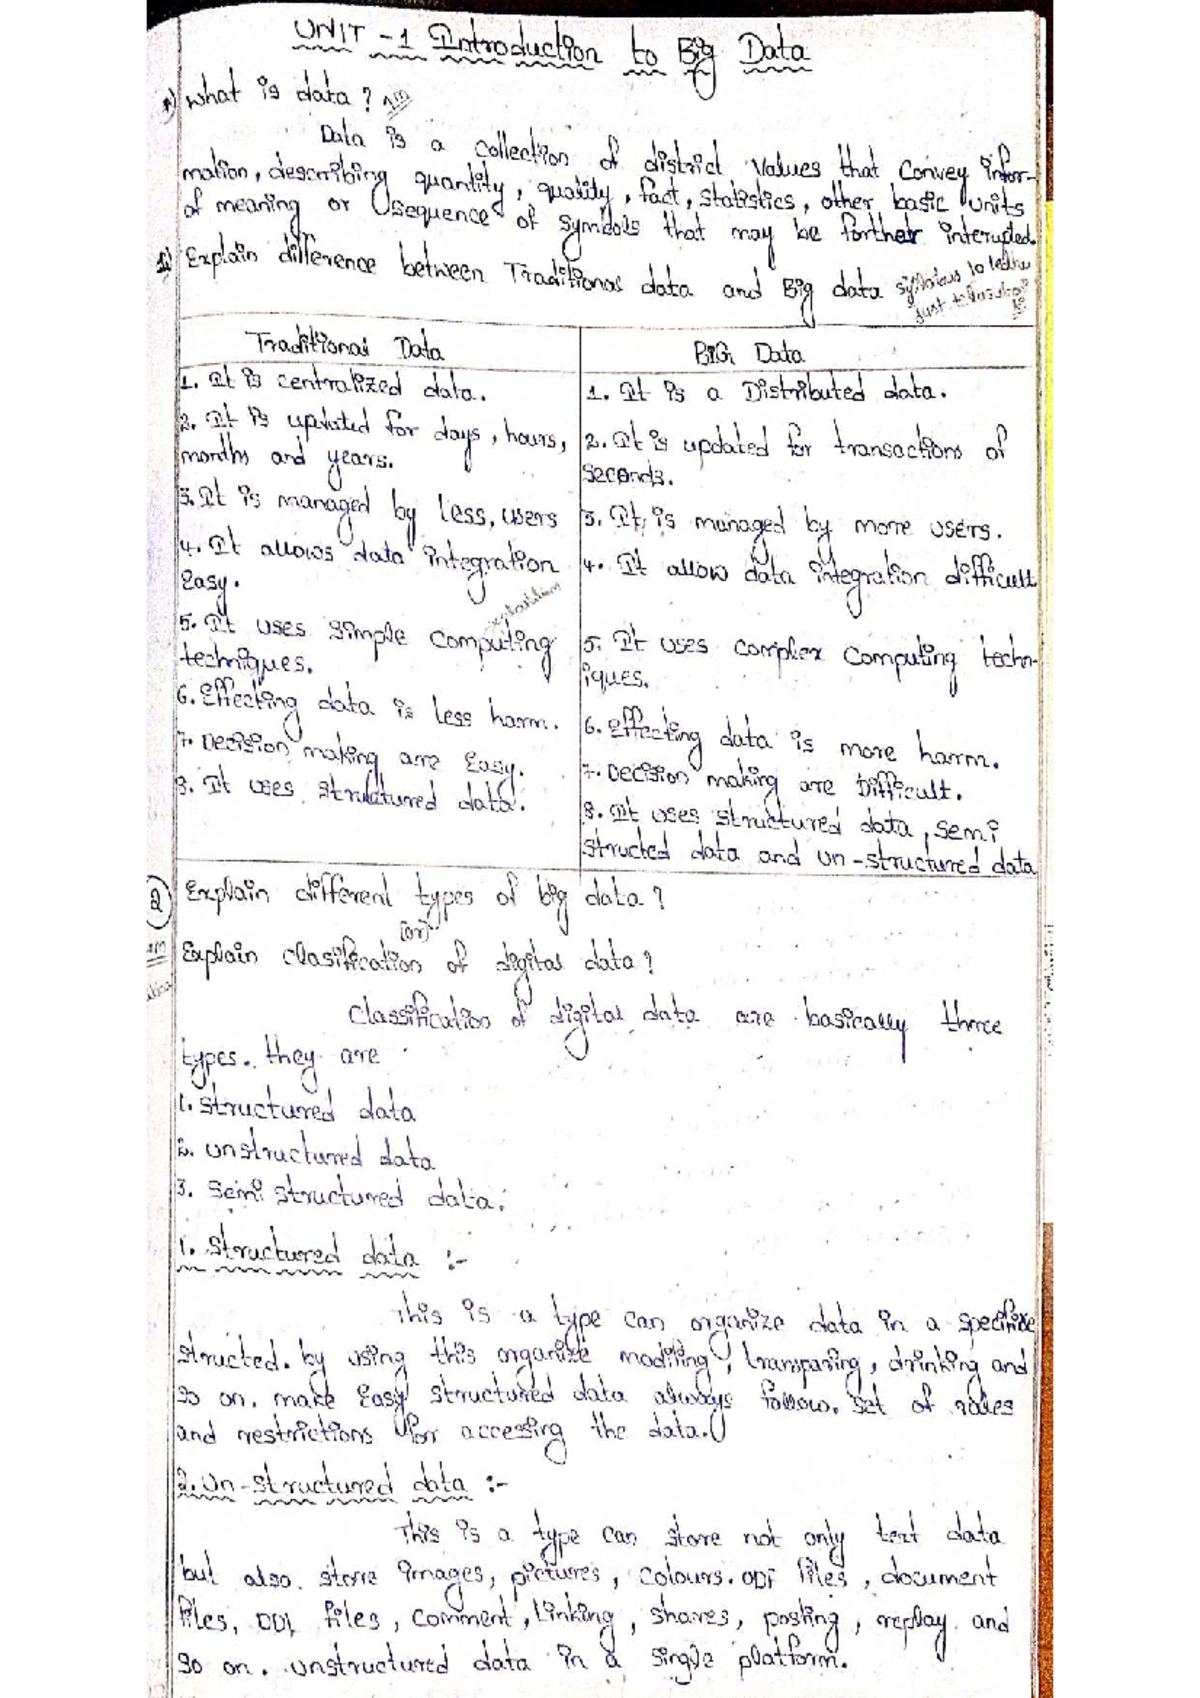 UNIT - 1 Introduction to Big Data
1) what is data ?
Data is a collection of district values that convey infor-
mation, describing quantity, quality, fact, statistics, other basic units
of meaning or sequence of symbols that may be further interupted.
Explain difference between Traditional data and Big data
Traditional Data
1. It is centralized data.
2. It is updated for days, hours,
months and years.
3. It is managed by less, users
4. It allows data integration
Easy.
5. It uses simple computing
techniques.
6. Effecting data is less harm.
7. Decision making are Easy.
8. It uses structured data.
BIG Data
1. It is a Distributed data.
2. It is updated for transactions of
seconds.
3. It is managed by more users.
4. It allow data integration difficult
5. It uses complex computing techn-
iques.
6. Effecting data is more harm.
7. Decision making are Difficult.
8. It uses structured data, semi
structed data and un-structured data
2 Explain different types of big data ?
(or)
Explain clasification of digital data ?
Classification of digital data are basically three
types. they are
1. structured data
2. unstructured data
3. semi structured data.
1. structured data :-
This is a type can organize data in a specific
structed. by using this organize modifing, , drinking and
so on. make Easy structured data always follow. set of rules
and restrictions for accessing the data.
2. un-structured data :-
This is a type can store not only text data
but also store images, pictures, colours. files, document
files, files, comment, linking, shares, posting, replay and
so on. unstructured data in a single platform.